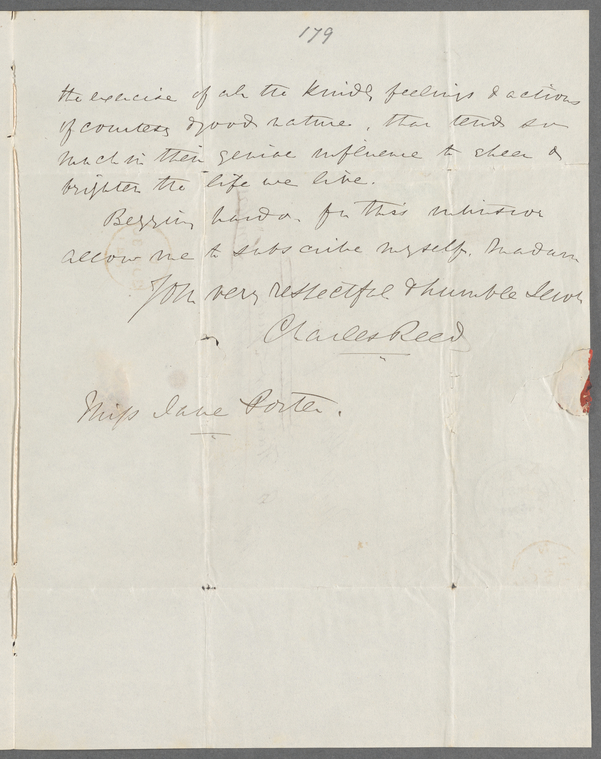 179
the exercise of all the kindly feelings & actions
of courtesy & good nature, that tend so
much in their genial influence to cheer &
brighten the life we live.
Begging pardon for this intrusion
allow me to subscribe myself, Madam
Your very respectful & humble Servt
Charles Reed
Miss Jane Porter.